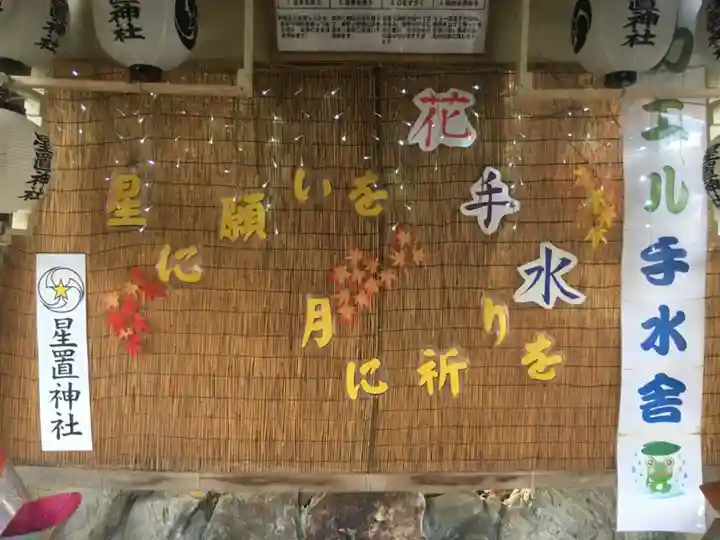 星置神社
置神社
星置神社
花手水
星に願いを
月に祈りを
星置神社
カエル手水舎